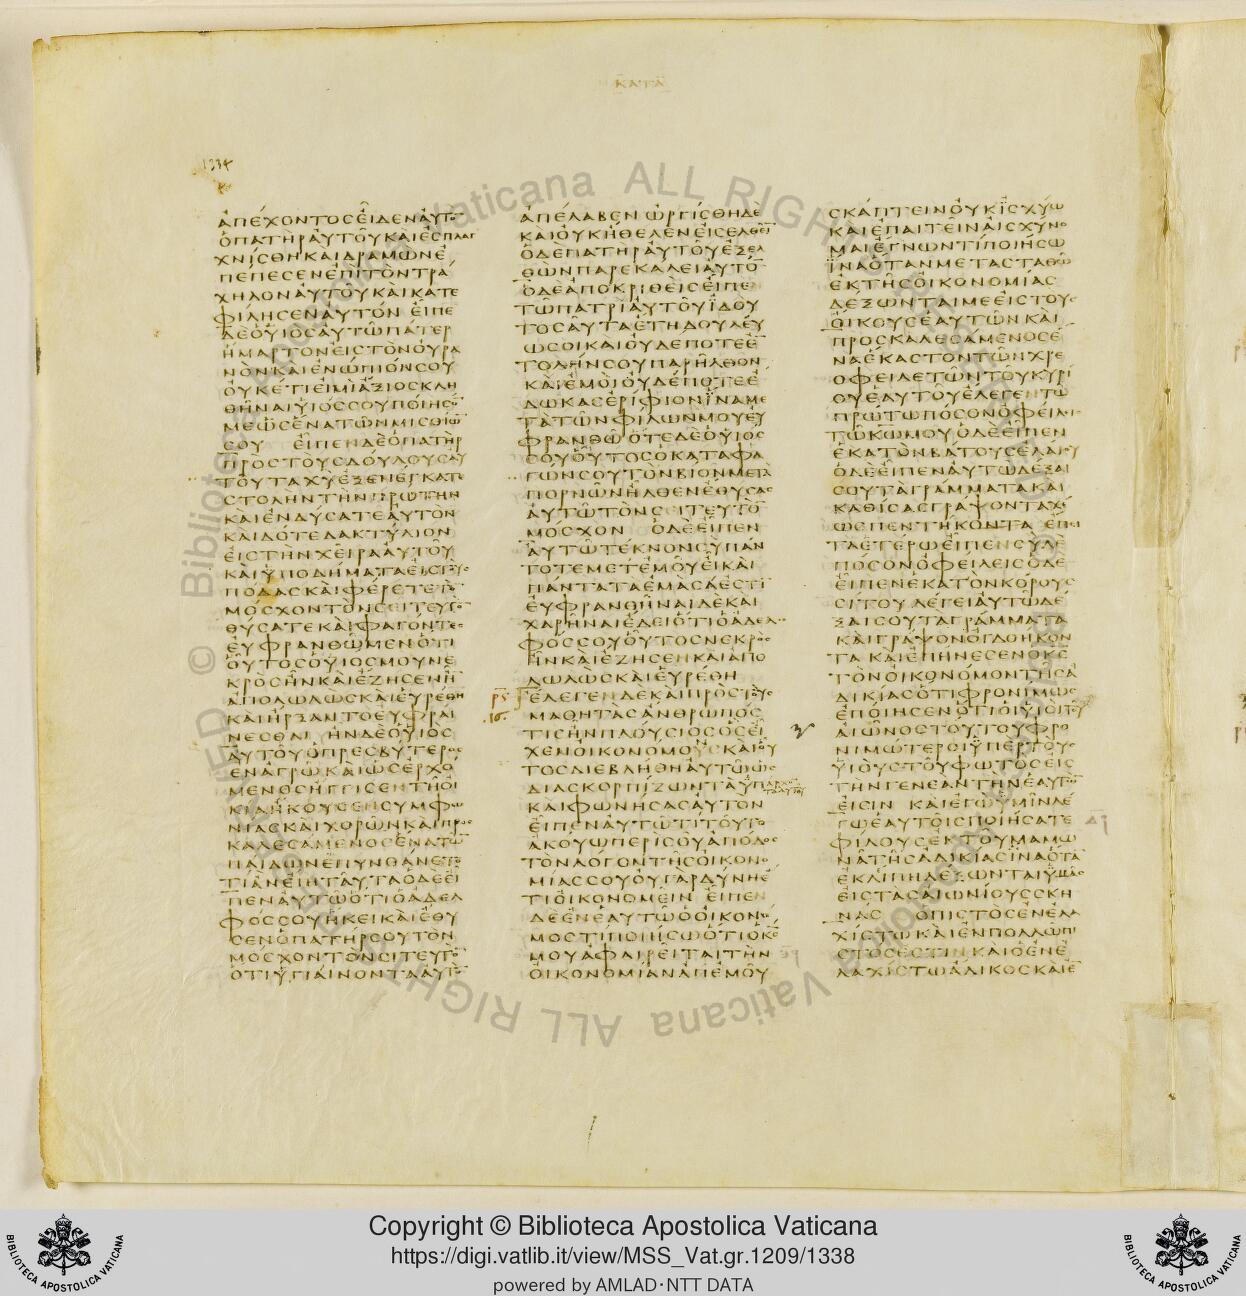 ΚΑΤΑ
1334
ΑΠΕΧΟΝΤΟΣΕΙΔΕΝΑΥΤΟ
ΟΠΑΤΗΡΑΥΤΟΥΚΑΙΕΣΠΛΑΓ
ΧΝΙΣΘΗΚΑΙΔΡΑΜΩΝΕ
ΠΕΠΕΣΕΝΕΠΙΤΟΝΤΡΑ
ΧΗΛΟΝΑΥΤΟΥΚΑΙΚΑΤΕ
ΦΙΛΗΣΕΝΑΥΤΟΝ ΕΙΠΕ
ΔΕΟΥΙΟΣΑΥΤΩΠΑΤΕΡ
ΗΜΑΡΤΟΝΕΙΣΤΟΝΟΥΡΑ
ΝΟΝΚΑΙΕΝΩΠΙΟΝΣΟΥ
ΟΥΚΕΤΙΕΙΜΙΑΞΙΟΣΚΛΗ
ΘΗΝΑΙΥΙΟΣΣΟΥΠΟΙΗΣΟ
ΜΕΩΣΕΝΑΤΩΝΜΙΣΘΙΩ
ΣΟΥ ΕΙΠΕΝΔΕΟΠΑΤΗΡ
ΠΡΟΣΤΟΥΣΔΟΥΛΟΥΣΑΥ
ΤΟΥΤΑΧΥΕΞΕΝΕΓΚΑΤΕ
ΣΤΟΛΗΝΤΗΝΠΡΩΤΗΝ
ΚΑΙΕΝΔΥΣΑΤΕΑΥΤΟΝ
ΚΑΙΔΟΤΕΔΑΚΤΥΛΙΟΝ
ΕΙΣΤΗΝΧΕΙΡΑΑΥΤΟΥ
ΚΑΙΥΠΟΔΗΜΑΤΑΕΙΣΤΟΥΣ
ΠΟΔΑΣΚΑΙΦΕΡΕΤΕΤΟ
ΜΟΣΧΟΝΤΟΝΣΕΙΤΕΥΤΟ
ΘΥΣΑΤΕΚΑΙΦΑΓΟΝΤΕΣ
ΕΥΦΡΑΝΘΩΜΕΝΟΤΙ
ΟΥΤΟΣΟΥΙΟΣΜΟΥΝΕ
ΚΡΟΣΗΝΚΑΙΕΖΗΣΕΝΗ
ΑΠΟΛΩΛΩΣΚΑΙΕΥΡΕΘΗ
ΚΑΙΗΡΞΑΝΤΟΕΥΦΡΑΙ
ΝΕΣΘΑΙ ΗΝΔΕΟΥΙΟΣ
ΑΥΤΟΥΟΠΡΕΣΒΥΤΕΡΟΣ
ΕΝΑΓΡΩΚΑΙΩΣΕΡΧΟ
ΜΕΝΟΣΗΓΓΙΣΕΝΤΗΟΙ
ΚΙΑΗΚΟΥΣΕΝΣΥΜΦΩ
ΝΙΑΣΚΑΙΧΟΡΩΝΚΑΙΠΡΟΣ
ΚΑΛΕΣΑΜΕΝΟΣΕΝΑΤΩ
ΠΑΙΔΩΝΕΠΥΝΘΑΝΕΤΟ
ΤΙΑΝΕΙΗΤΑΥΤΑΟΔΕΕΙ
ΠΕΝΑΥΤΩΟΤΙΟΑΔΕΛ
ΦΟΣΣΟΥΗΚΕΙΚΑΙΕΘΥ
ΣΕΝΟΠΑΤΗΡΣΟΥΤΟΝ
ΜΟΣΧΟΝΤΟΝΣΙΤΕΥΤΟ
ΟΤΙΥΓΙΑΙΝΟΝΤΑΑΥΤΟ
ΑΠΕΛΑΒΕΝ ΩΡΓΙΣΘΗΔΕ
ΚΑΙΟΥΚΗΘΕΛΕΝΕΙΣΕΛΘΕΙ
ΟΔΕΠΑΤΗΡΑΥΤΟΥΕΞΕΛ
ΘΩΝΠΑΡΕΚΑΛΕΙΑΥΤΟ
ΟΔΕΑΠΟΚΡΙΘΕΙΣΕΙΠΕ
ΤΩΠΑΤΡΙΑΥΤΟΥΙΔΟΥ
ΤΟΣΑΥΤΑΕΤΗΔΟΥΛΕΥ
ΩΣΟΙΚΑΙΟΥΔΕΠΟΤΕΕ
ΤΟΛΗΝΣΟΥΠΑΡΗΛΘΟΝ
ΚΑΙΕΜΟΙΟΥΔΕΠΟΤΕΕ
ΔΩΚΑΣΕΡΙΦΙΟΝΙΝΑΜΕ
ΤΑΤΩΝΦΙΛΩΝΜΟΥΕΥ
ΦΡΑΝΘΩΟΤΕΔΕΟΥΙΟΣ
ΣΟΥΟΥΤΟΣΟΚΑΤΑΦΑ
ΓΩΝΣΟΥΤΟΝΒΙΟΝΜΕΤΑ
ΠΟΡΝΩΝΗΛΘΕΝΕΘΥΣΑΣ
ΑΥΤΩΤΟΝΣΕΙΤΕΥΤΟ
ΜΟΣΧΟΝ ΟΔΕΕΙΠΕΝ
ΑΥΤΩΤΕΚΝΟΝΣΥΠΑΝ
ΤΟΤΕΜΕΤΕΜΟΥΕΙΚΑΙ
ΠΑΝΤΑΤΑΕΜΑΣΑΕΣΤΙ
ΕΥΦΡΑΝΘΗΝΑΙΔΕΚΑΙ
ΧΑΡΗΝΑΙΕΔΕΙΟΤΙΟΑΔΕΛ
ΦΟΣΣΟΥΟΥΤΟΣΝΕΚΡΟΣ
ΗΝΚΑΙΕΖΗΣΕΝΚΑΙΑΠΟ
ΛΩΛΩΣΚΑΙΕΥΡΕΘΗ
ΕΛΕΓΕΝΔΕΚΑΙΠΡΟΣΤΟΥΣ
ΜΑΘΗΤΑΣΑΝΘΡΩΠΟΣ
ΤΙΣΗΝΠΛΟΥΣΙΟΣΟΣΕΙ
ΧΕΝΟΙΚΟΝΟΜΟΥΣΚΑΙΟΥ
ΤΟΣΔΙΕΒΛΗΘΗΑΥΤΩΩΣ
ΔΙΑΣΚΟΡΠΙΖΩΝΤΑΥΠΑΡΧΟΝΤΑΑΥΤΟΥ
ΚΑΙΦΩΝΗΣΑΣΑΥΤΟΝ
ΕΙΠΕΝΑΥΤΩΤΙΤΟΥΤΟ
ΑΚΟΥΩΠΕΡΙΣΟΥΑΠΟΔΟΣ
ΤΟΝΛΟΓΟΝΤΗΣΟΙΚΟΝΟ
ΜΙΑΣΣΟΥΟΥΓΑΡΔΥΝΗΕ
ΤΙΟΙΚΟΝΟΜΕΙΝ ΕΙΠΕΝ
ΔΕΕΝΕΑΥΤΩΟΟΙΚΟΝΟ
ΜΟΣΤΙΠΟΙΗΣΩΟΤΙΟΚΣ
ΜΟΥΑΦΑΙΡΕΙΤΑΙΤΗΝ
ΟΙΚΟΝΟΜΙΑΝΑΠΕΜΟΥ
ΣΚΑΠΤΕΙΝΟΥΚΙΣΧΥΩ
ΚΑΙΕΠΑΙΤΕΙΝΑΙΣΧΥΝΟ
ΜΑΙΕΓΝΩΝΤΙΠΟΙΗΣΩ
ΙΝΑΟΤΑΝΜΕΤΑΣΤΑΘΩ
ΕΚΤΗΣΟΙΚΟΝΟΜΙΑΣ
ΔΕΞΩΝΤΑΙΜΕΕΙΣΤΟΥΣ
ΟΙΚΟΥΣΕΑΥΤΩΝΚΑΙ
ΠΡΟΣΚΑΛΕΣΑΜΕΝΟΣΕ
ΝΑΕΚΑΣΤΟΝΤΩΝΧΡΕ
ΟΦΕΙΛΕΤΩΝΤΟΥΚΥΡΙ
ΟΥΕΑΥΤΟΥΕΛΕΓΕΝΤΩ
ΠΡΩΤΩΠΟΣΟΝΟΦΕΙΛΕΙΣ
ΤΩΚΩΜΟΥΟΔΕΕΙΠΕΝ
ΕΚΑΤΟΝΒΑΤΟΥΣΕΛΑΙΟΥ
ΟΔΕΕΙΠΕΝΑΥΤΩΔΕΞΑΙ
ΣΟΥΤΑΓΡΑΜΜΑΤΑΚΑΙ
ΚΑΘΙΣΑΣΓΡΑΨΟΝΤΑΧΕ
ΩΣΠΕΝΤΗΚΟΝΤΑ ΕΠΕΙ
ΤΑΕΤΕΡΩΕΙΠΕΝΣΥΔΕ
ΠΟΣΟΝΟΦΕΙΛΕΙΣΟΔΕ
ΕΙΠΕΝΕΚΑΤΟΝΚΟΡΟΥΣ
ΣΙΤΟΥ ΛΕΓΕΙΑΥΤΩΔΕ
ΞΑΙΣΟΥΤΑΓΡΑΜΜΑΤΑ
ΚΑΙΓΡΑΨΟΝΟΓΔΟΗΚΟΝ
ΤΑ ΚΑΙΕΠΗΝΕΣΕΝΟΚΣ
ΤΟΝΟΙΚΟΝΟΜΟΝΤΗΣΑ
ΔΙΚΙΑΣΟΤΙΦΡΟΝΙΜΩΣ
ΕΠΟΙΗΣΕΝΟΤΙΟΙΥΙΟΙΤΟΥ
ΑΙΩΝΟΣΤΟΥΤΟΥΦΡΟ
ΝΙΜΩΤΕΡΟΙΥΠΕΡΤΟΥΣ
ΥΙΟΥΣΤΟΥΦΩΤΟΣΕΙΣ
ΤΗΝΓΕΝΕΑΝΤΗΝΕΑΥΤΩ
ΕΙΣΙΝ ΚΑΙΕΓΩΥΜΙΝΛΕ
ΓΩΕΑΥΤΟΙΣΠΟΙΗΣΑΤΕ
ΦΙΛΟΥΣΕΚΤΟΥΜΑΜΩ
ΝΑΤΗΣΑΔΙΚΙΑΣΙΝΑΟΤΑ
ΕΚΛΙΠΗΔΕΞΩΝΤΑΙΥΜΑΣ
ΕΙΣΤΑΣΑΙΩΝΙΟΥΣΣΚΗ
ΝΑΣ ΟΠΙΣΤΟΣΕΝΕΛΑ
ΧΙΣΤΩΚΑΙΕΝΠΟΛΛΩΠΙ
ΣΤΟΣΕΣΤΙΝΚΑΙΟΕΝΕ
ΛΑΧΙΣΤΩΑΔΙΚΟΣΚΑΙΕ
Copyright © Biblioteca Apostolica Vaticana
https://digi.vatlib.it/view/MSS_Vat.gr.1209/1338
powered by AMLAD·NTT DATA
BIBLIOTECA APOSTOLICA VATICANA
BIBLIOTECA APOSTOLICA VATICANA